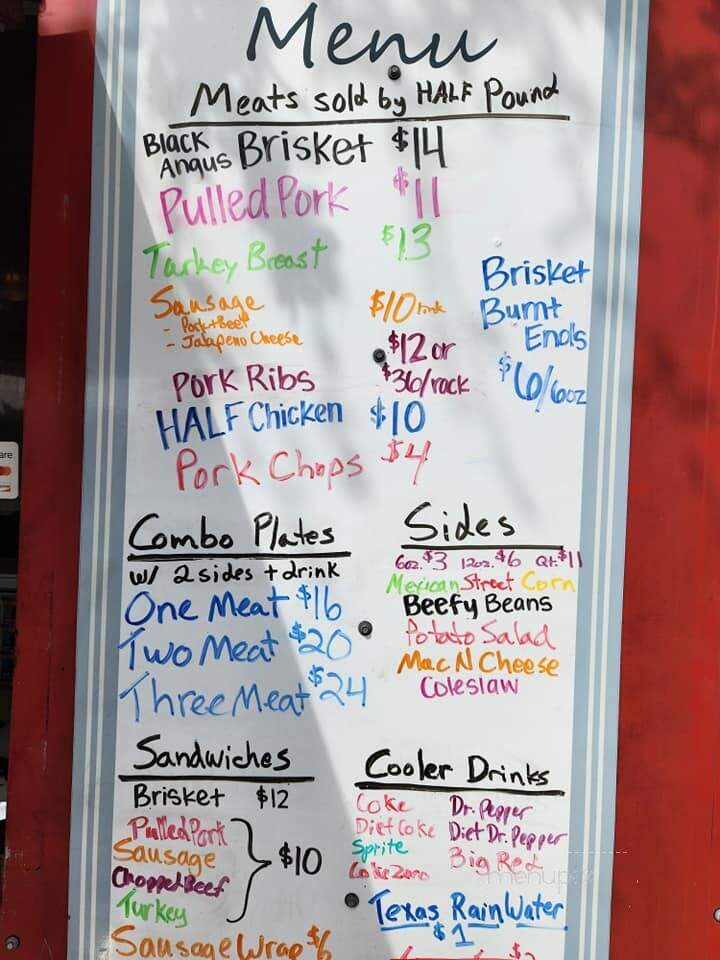 Menu
Meats sold by HALF Pound
Black Angus Brisket $14
Pulled Pork $11
Turkey Breast $13
Sausage $10 link
- Pork+Beef
- Jalapeno Cheese
Pork Ribs $12 or $36/rack
HALF Chicken $10
Pork Chops $4
Brisket
Burnt
Ends
$6/6oz
Combo Plates
w/ 2 sides + drink
One Meat $16
Two Meat $20
Three Meat $24
Sides
6oz. $3 12oz. $6 Qt. $11
Mexican Street Corn
Beefy Beans
Potato Salad
Mac N Cheese
Coleslaw
Sandwiches
Brisket $12
Pulled Pork
Sausage
Chopped Beef
Turkey
$10
Sausage Wrap $6
Cooler Drinks
Coke
Diet Coke
Sprite
Coke Zero
Dr. Pepper
Diet Dr. Pepper
Big Red
Texas Rain Water
$1
$2
are